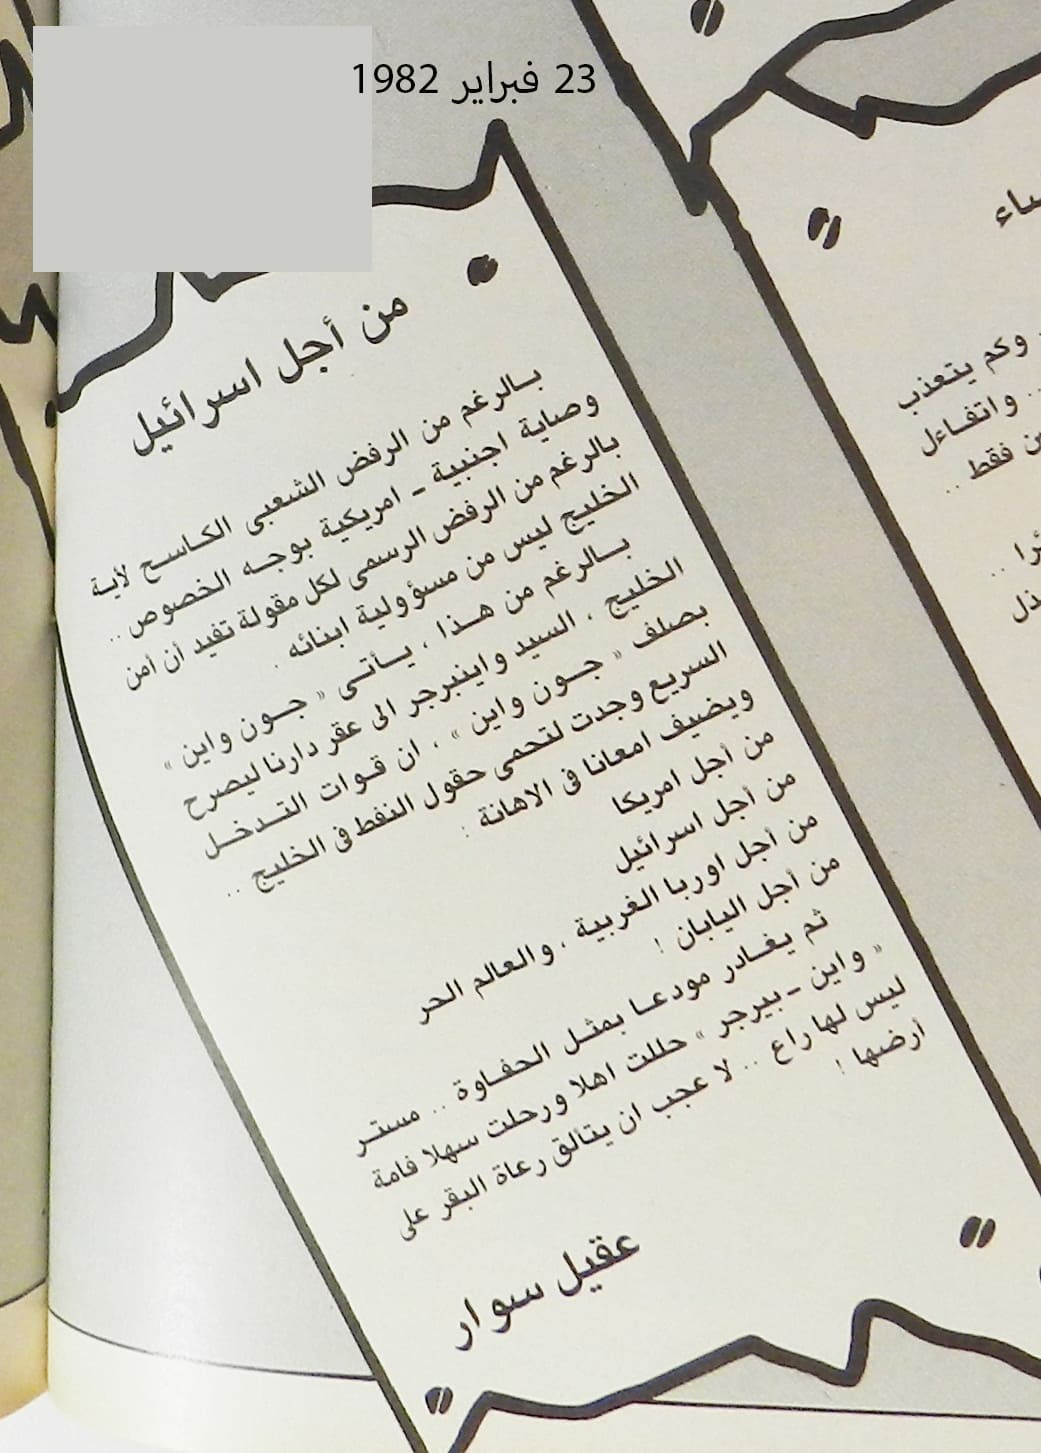 23 فبراير 1982
من أجل اسرائيل
بالرغم من الرفض الشعبى الكاسح لأية
وصاية اجنبية - امريكية بوجه الخصوص ..
بالرغم من الرفض الرسمى لكل مقولة تفيد أن أمن
الخليج ليس من مسؤولية ابنائه .
بالرغم من هذا ، يأتى « جون واين »
الخليج ، السيد واينبرجر الى عقر دارنا ليصرح
بصلف « جون واين » ، ان قوات التدخل
السريع وجدت لتحمى حقول النفط فى الخليج ..
ويضيف امعانا فى الاهانة :
من أجل امريكا
من أجل اسرائيل
من أجل اوربا الغربية ، والعالم الحر
من أجل اليابان !
ثم يغادر مودعا بمثل الحفاوة .. مستر
« واين - بيرجر » حللت اهلا ورحلت سهلا فامة
ليس لها راع .. لا عجب ان يتألق رعاة البقر على
أرضها !
عقيل سوار
وكم يتعذب
.. واتفاءل
فقط ..